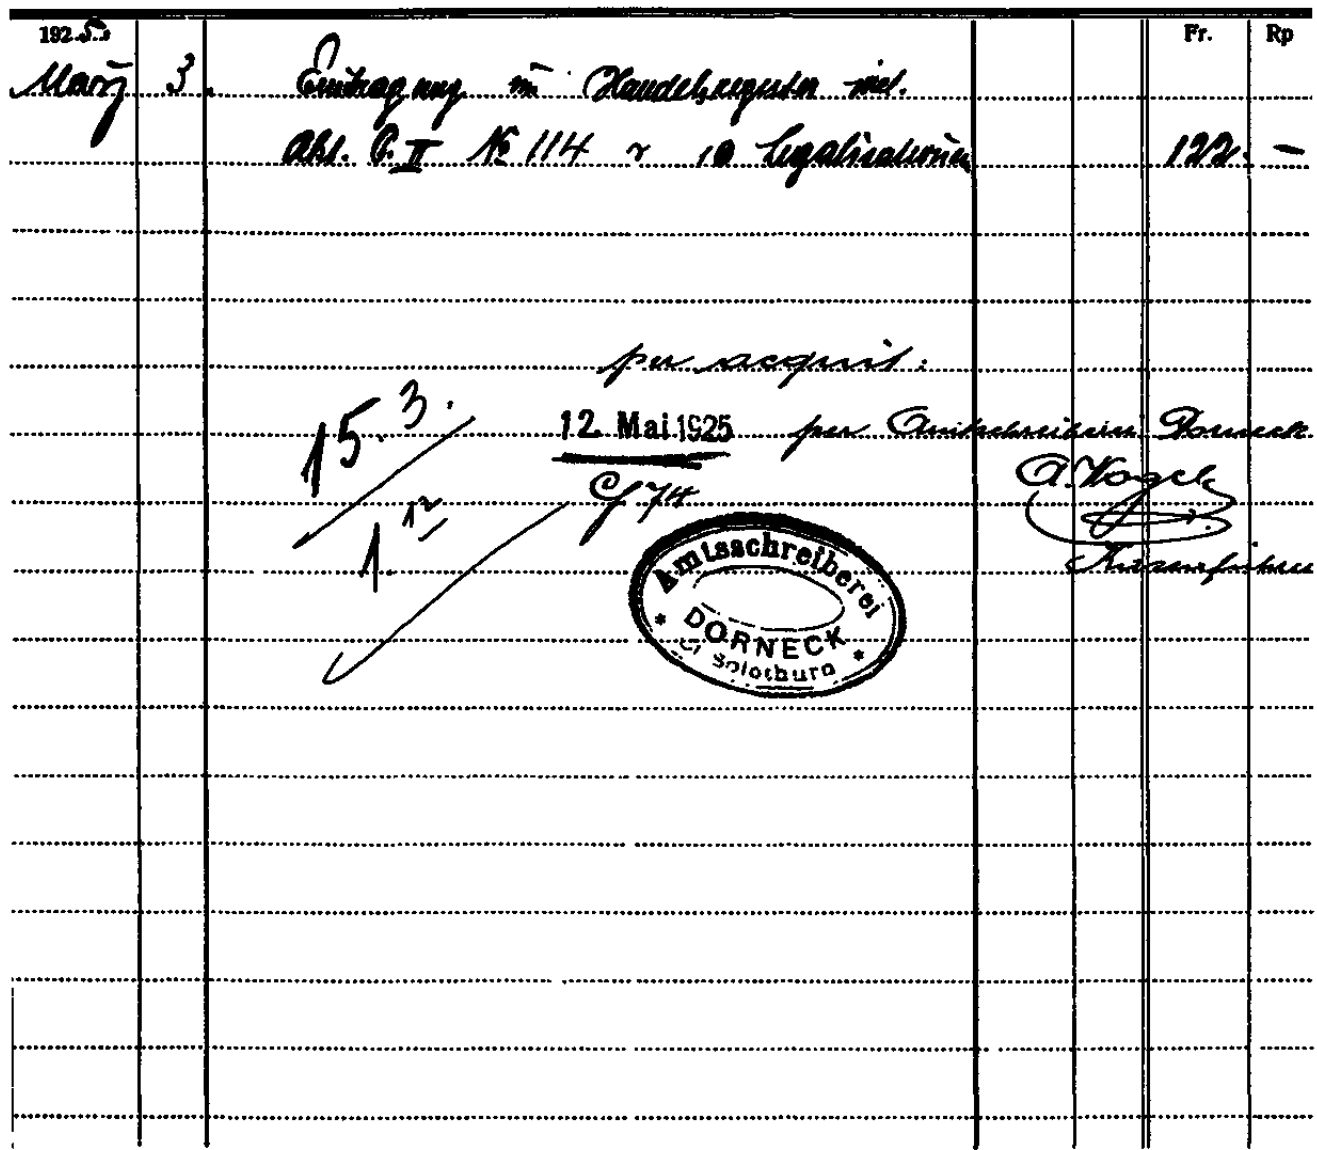 1925. Fr. Rp
März 3. Eintragung im Handelsregister incl.
Abt. II № 114 10 Legalisationen 122. —
per acquit:
15. 3.
12. Mai 1925 per Amtschreiberei Dorneck
A. Vogel
74
1. 12
Amtsschreiberei
DORNECK
Ct. Solothurn
Kassenführer